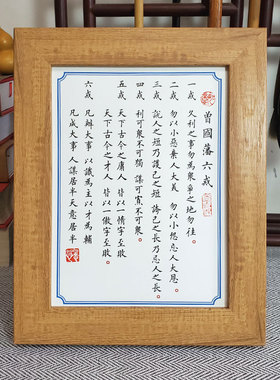 曾國藩六戒
一戒 久利之事勿為眾爭之地勿往。
二戒 勿以小惡棄人大美 勿以小怨忘人大恩。
三戒 說人之短乃護己之短 誇己之長乃忌人之長。
四戒 利可眾不可獨 謀可寡不可眾。
五戒 天下古今之庸人 皆以一惰字至敗
天下古今之才人 皆以一傲字至敗。
六戒 凡辦大事 以識為主以才為輔
凡成大事 人謀居半天意居半